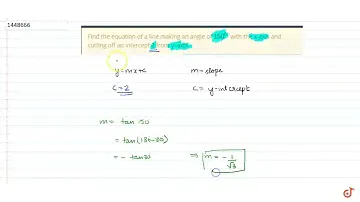 1448666
Find the equation of a line making an angle of 150° with the x-axis and
cutting off an intercept 2 from y-axis.
y=mx+c m-slope
c=2 c= y-intercept
m= tan 150
= tan(180-30)
= - tan30 ⇒ m = - 1/√3